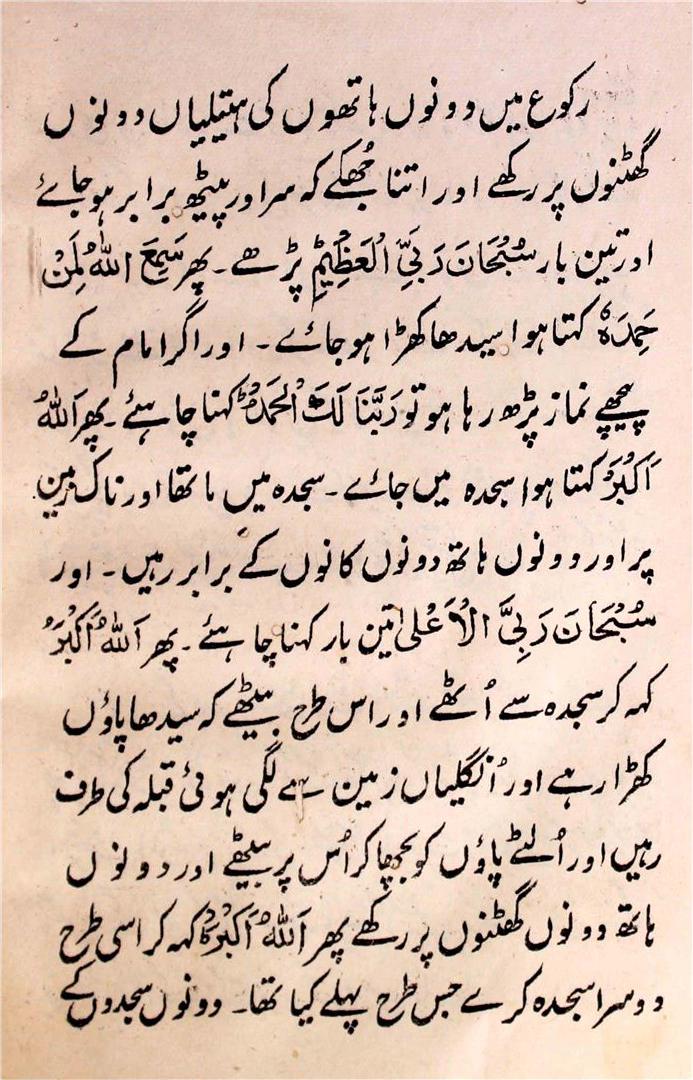 رکوع میں دونوں ہاتھوں کی ہتیلیاں دونوں
گھٹنوں پر رکھے اور اتنا جُھکے کہ سر اور پیٹھ برابر ہو جائے
اور تین بار سُبْحَانَ رَبِّیَ الْعَظِیْمِ پڑھے۔ پھر سَمِعَ اللّٰہُ لِمَنْ
حَمِدَہٗ کہتا ہوا سیدھا کھڑا ہو جائے۔ اور اگر امام کے
پیچھے نماز پڑھ رہا ہو تو رَبَّنَا لَکَ الْحَمْدُ کہنا چاہئے۔ پھر اَللّٰہُ
اَکْبَرُ کہتا ہوا سجدہ میں جائے۔ سجدہ میں ماتھا اور ناک زمین
پر اور دونوں ہاتھ دونوں کانوں کے برابر رہیں۔ اور
سُبْحَانَ رَبِّیَ الْاَعْلٰی تین بار کہنا چاہئے۔ پھر اَللّٰہُ اَکْبَرُ
کہہ کر سجدہ سے اُٹھے اور اس طرح بیٹھے کہ سیدھا پاؤں
کھڑا رہے اور اُنگلیاں زمین سے لگی ہوئی قبلہ کی طرف
رہیں اور اُلٹے پاؤں کو بچھا کر اُس پر بیٹھے اور دونوں
ہاتھ دونوں گھٹنوں پر رکھے پھر اَللّٰہُ اَکْبَرُ کہہ کر اسی طرح
دوسرا سجدہ کرے جس طرح پہلے کیا تھا۔ دونوں سجدوں کے